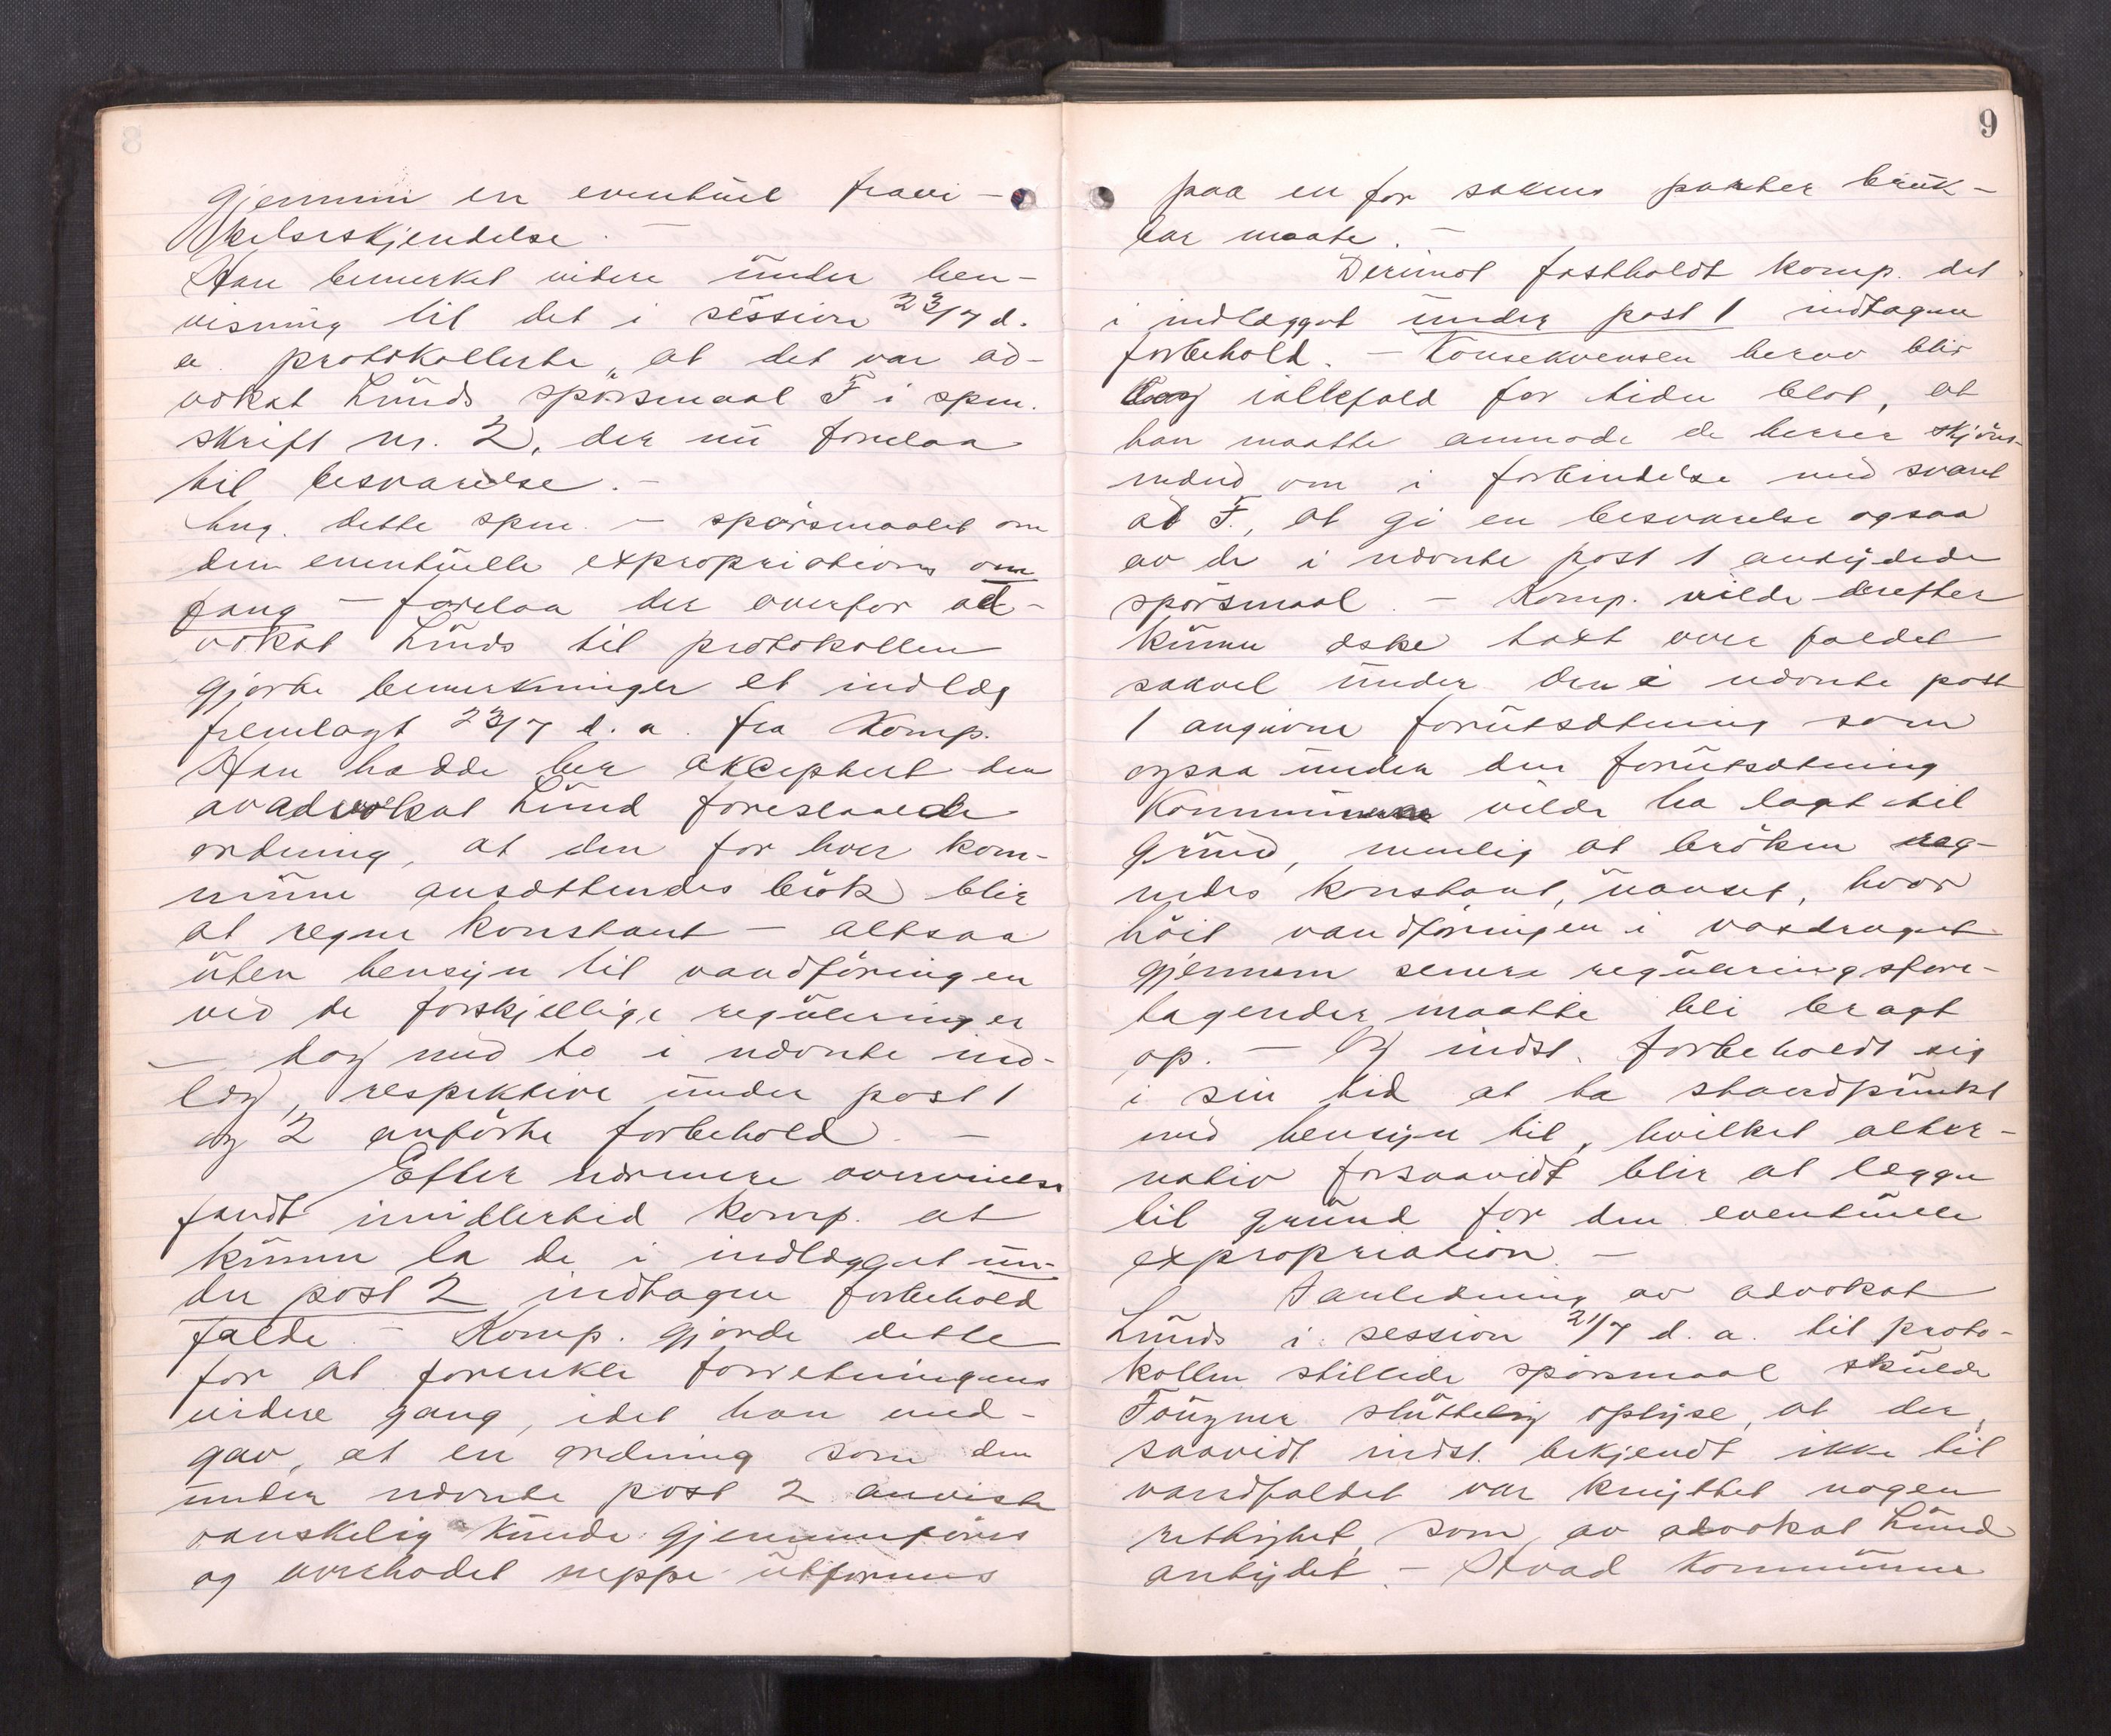 8
gjennem en eventuel fravi-
kelseskjendelse. —
Han bemerket videre under hen-
visning til det i session 23/7 d.
a. protokollerte, at det var ad-
vokat Lunds spørsmaal F i spm.
skrift nr. 2, der nu forelaa
til besvarelse. —
Ang. dette spm. — spørsmaalet om
den eventuelle expropriations om
fang — forelaa der overfor ad-
vokat Lunds til protokollen
gjorte bemerkninger et indlæg
fremlagt 23/7 d. a. fra Komp.
Han hadde her akceptert den
av advokat Lund foreslaaede
ordning, at den for hver kom-
mune ansættendes brök blir
at regne konstant — altsaa
uten hensyn til vandföringen
ved de forskjellige reguleringer
— dog med to i nævnte ind-
læg, respektive under post 1
og 2 anförte forbehold. —
Efter nærmere overveielse
fandt imidlertid Komp. at
kunne la de i indlægget un-
der post 2 indtagne forbehold
falde. — Komp. gjorde dette
for at forenkle forretningens
videre gang, idet han med-
gav, at en ordning som den
under nævnte post 2 anviste
vanskelig kunde gjennemföres
og overhodet neppe utformes
9
paa en for sakens parter bruk-
bar maate. —
Derimot fastholdt Komp. det
i indlægget under post 1 indtagne
forbehold. — Konsekvensen herav blir
dog iallefald for tiden blot, at
han maatte anmode de herrer skjöns-
mænd om i forbindelse med svaret
at F., at gi en besvarelse ogsaa
av de i nævnte post 1 antydede
spörsmaal. — Komp. vilde derefter
kunne æske takt over faldet
saavel under den i nævnte post
1 angivne forutsætning som
ogsaa under den forutsætning
Kommunene vilde ha lagt til
grund, nemlig at bröken reg-
nedes konstant, uanset, hvor
höit vandföringen i vasdraget
gjennem senere reguleringsfore-
tagender maatte bli bragt
op. — Og indst. forbeholdt sig
i sin tid at ta standpunkt
med hensyn til, hvilket alter-
nativ forsaavidt blir at lægge
til grund for den eventuelle
expropriation. —
I anledning av advokat
Lunds i session 21/7 d. a. til proto-
kollen stillede spörsmaal skulde
Fougner sluttelig oplyse, at der,
saavidt indst. bekjendt ikke til
vandfaldet var knyttet nogen
rettighet, som av advokat Lund
antydet. — Hvad Kommunene